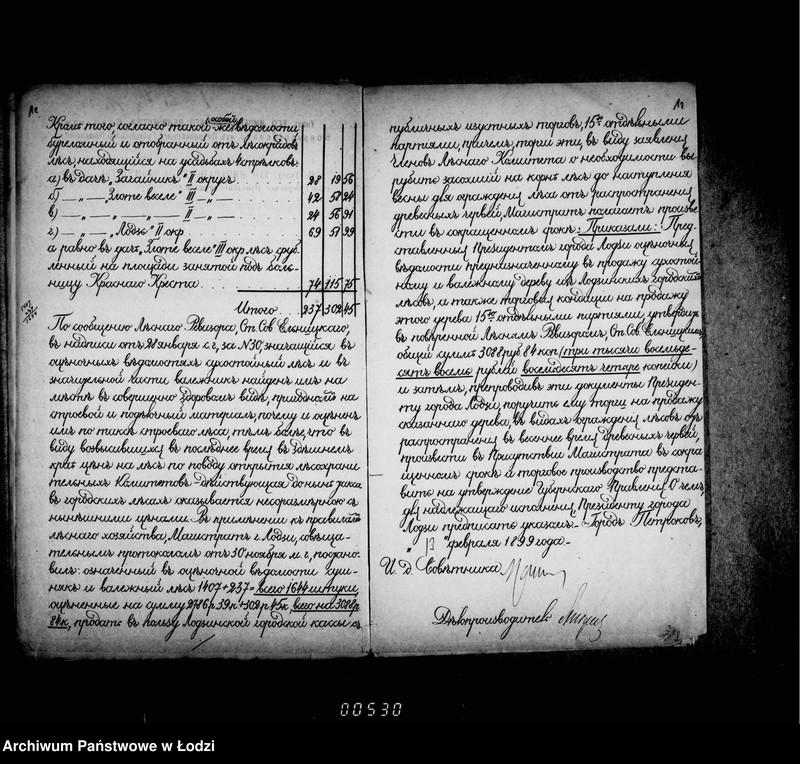 12
Кромѣ того согласно такой же особой вѣдомости
буреломный и отобранный отъ лѣсокрадовъ
лѣсъ, находящійся на усадьбахъ стрѣлковъ
а) въ дачѣ „Загайникъ" II округ. . . . . 28 19 56
б) — „ — „Злоте веселе" III — „ — . . . 42 57 24
в) — „ — „ — „ — II — „ — . . . 24 56 91
г) — „ — „Лодзь" II окр. . . . . 69 57 99
а равно въ дачѣ „Злоте веселе" III окр. лѣсъ сруб-
ленный на площади занятой подъ боль-
ницу Краснаго Креста . . . . . 74 115 75
Итого . . 237 302 45
По сообщенію Лѣснаго Ревизора, Ст. Сов. Ельницкаго,
въ надписи отъ 28 января с. г., за N 30, значащійся въ
оцѣночныхъ вѣдомостяхъ сухостойный лѣсъ и въ
значительной части валежникъ найденъ имъ на
мѣстѣ въ совершенно здоровомъ видѣ, пригоднымъ на
строевой и подѣлочный матеріалъ, почему и оцѣненъ
имъ по таксѣ строеваго лѣса, тѣмъ болѣе, что въ
виду возвысившихся въ послѣднее время въ здѣшнемъ
краѣ цѣнъ на лѣсъ по поводу открытія лѣсохрани
тельныхъ Комитетовъ дѣйствующая донынѣ такса
въ городскихъ лѣсахъ оказывается несоразмѣрною съ
нынѣшними цѣнами. Въ примѣненіи къ правиламъ
лѣснаго хозяйства, Магистратъ г. Лодзи, совѣща-
тельнымъ протоколомъ отъ 30 ноября м. г., постано-
вилъ: означенный въ оцѣночной вѣдомости суш-
някъ и валежный лѣсъ 1407+237= всего 1644 штуки,
оцѣненные на сумму 2786 р. 39 к + 302 р. 45 к, всего на 3088 р
84 к, продать въ пользу Лодзинской городской кассы съ
публичныхъ изустныхъ торговъ, 15ю отдѣльными
партіями, причемъ, торги эти, въ виду заявленія
членовъ Лѣснаго Комитета о необходимости вы
рубить засохшій на корнѣ лѣсъ до наступленія
весны для огражденія лѣса отъ распространенія
древесныхъ червей, Магистратъ полагаетъ произве
сти въ сокращенномъ срокѣ. Приказали: Пред-
ставленныя Президентомъ города Лодзи оцѣночныя
вѣдомости предназначенному въ продажу сухостой-
ному и валежному дереву изъ Лодзинскихъ городскихъ
лѣсовъ, а также торговыя кондиціи на продажу
этого дерева 15ю отдѣльными партіями, утвердить
въ повѣренной Лѣснымъ Ревизоромъ, Ст. Сов. Ельницкимъ,
общей суммѣ 3088 руб 84 коп. /три тысячи восемьде-
сятъ восемь рублей восемьдесятъ четыре копѣйки/
и затѣмъ, препроводивъ эти документы Президен-
ту города Лодзи, поручить ему торги на продажу
сказаннаго дерева, въ видахъ огражденія лѣсовъ отъ
распространенія въ весеннее время древесныхъ червей,
произвести въ Присутствіи Магистрата въ сокра
щенномъ срокѣ и торговое производство предста-
вить на утвержденіе Губернскаго Правленія. О чемъ,
для надлежащаго исполненія, Президенту города
Лодзи предписать указомъ. — Городъ Петроковъ,
„ 12 " февраля 1899 года. —
И. Д. Совѣтника
Дѣлопроизводитель
00530
Archiwum Państwowe w Łodzi